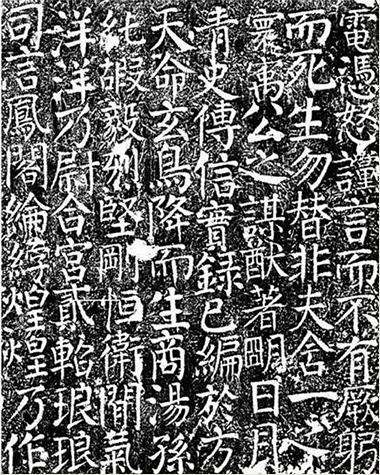 電憑怒讜言而不有厥躬
而死生勿替非夫含一
寰寓公之謀猷著明日月
青史傳信實錄已編於方
天命玄鳥降而生商湯孫
純嘏毅烈堅剛恒衛閒氣
洋洋乃尉合宮貳軺琅琅
司言鳳閣綸綍煌煌乃作